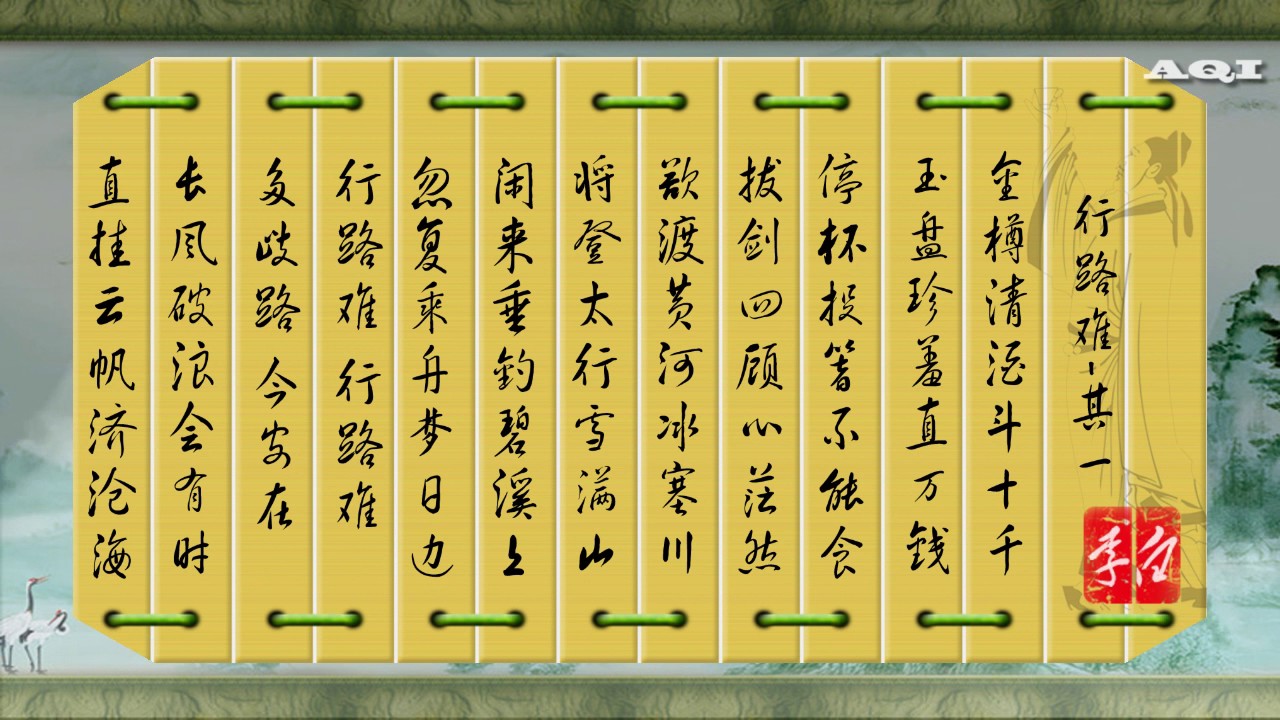 AQI
行路难-其一
李白
金樽清酒斗十千
玉盘珍羞直万钱
停杯投箸不能食
拔剑四顾心茫然
欲渡黄河冰塞川
将登太行雪满山
闲来垂钓碧溪上
忽复乘舟梦日边
行路难 行路难
多歧路 今安在
长风破浪会有时
直挂云帆济沧海